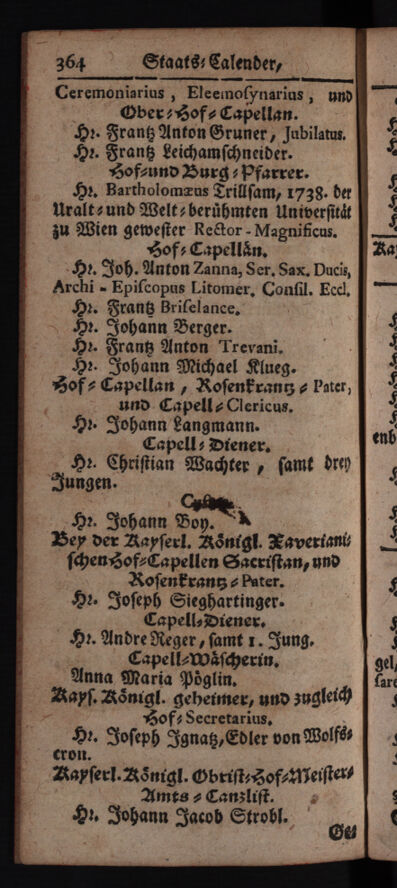 364 Staats-Calender,
Ceremoniarius, Eleemosynarius, und
Ober-Hof-Capellan.
Hr. Frantz Anton Gruner, Jubilatus.
Hr. Frantz Leichamschneider.
Hof-und Burg-Pfarrer.
Hr. Bartholomæus Trillsam, 1738. der
Uralt-und Welt-berühmten Universität
zu Wien gewester Rector-Magnificus.
Hof-Capellän.
Hr. Joh. Anton Zanna, Ser. Sax. Ducis,
Archi-Episcopus Litomer. Consil. Eccl.
Hr. Frantz Briselance.
Hr. Johann Berger.
Hr. Frantz Anton Trevani.
Hr. Johann Michael Klueg.
Hof-Capellan, Rosenkrantz-Pater,
und Capell-Clericus.
Hr. Johann Langmann.
Capell-Diener.
Hr. Christian Wachter, samt drey
Jungen.
Hr. Johann Boy.
Bey der Kayserl. Königl. Xaveriani-
schen Hof-Capellen Sacristan, und
Rosenkrantz-Pater.
Hr. Joseph Sieghartinger.
Capell-Diener.
Hr. Andre Reger, samt 1. Jung.
Capell-Wäscherin.
Anna Maria Pöglin.
Kays. Königl. geheimer, und zugleich
Hof-Secretarius.
Hr. Joseph Ignatz, Edler von Wolfs-
cron.
Kayserl. Königl. Obrist-Hof-Meister-
Amts-Canzlist.
Hr. Johann Jacob Strobl.
Ge-